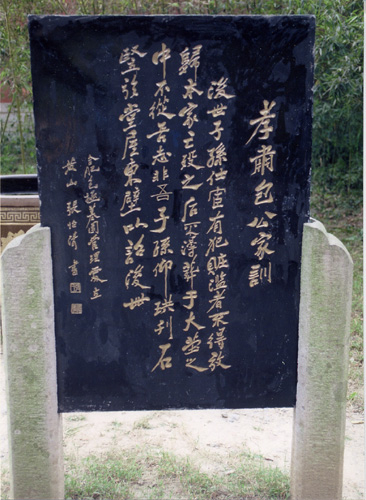 孝肅包公家訓
後世子孫仕宦有犯賍濫者不得放
歸本家亡殁之后不得葬于大茔之
中不從吾志非吾子孫仰珙刊石
竪於堂屋東壁以詔後世
合肥包拯墓園管理處立
黄山 張 書